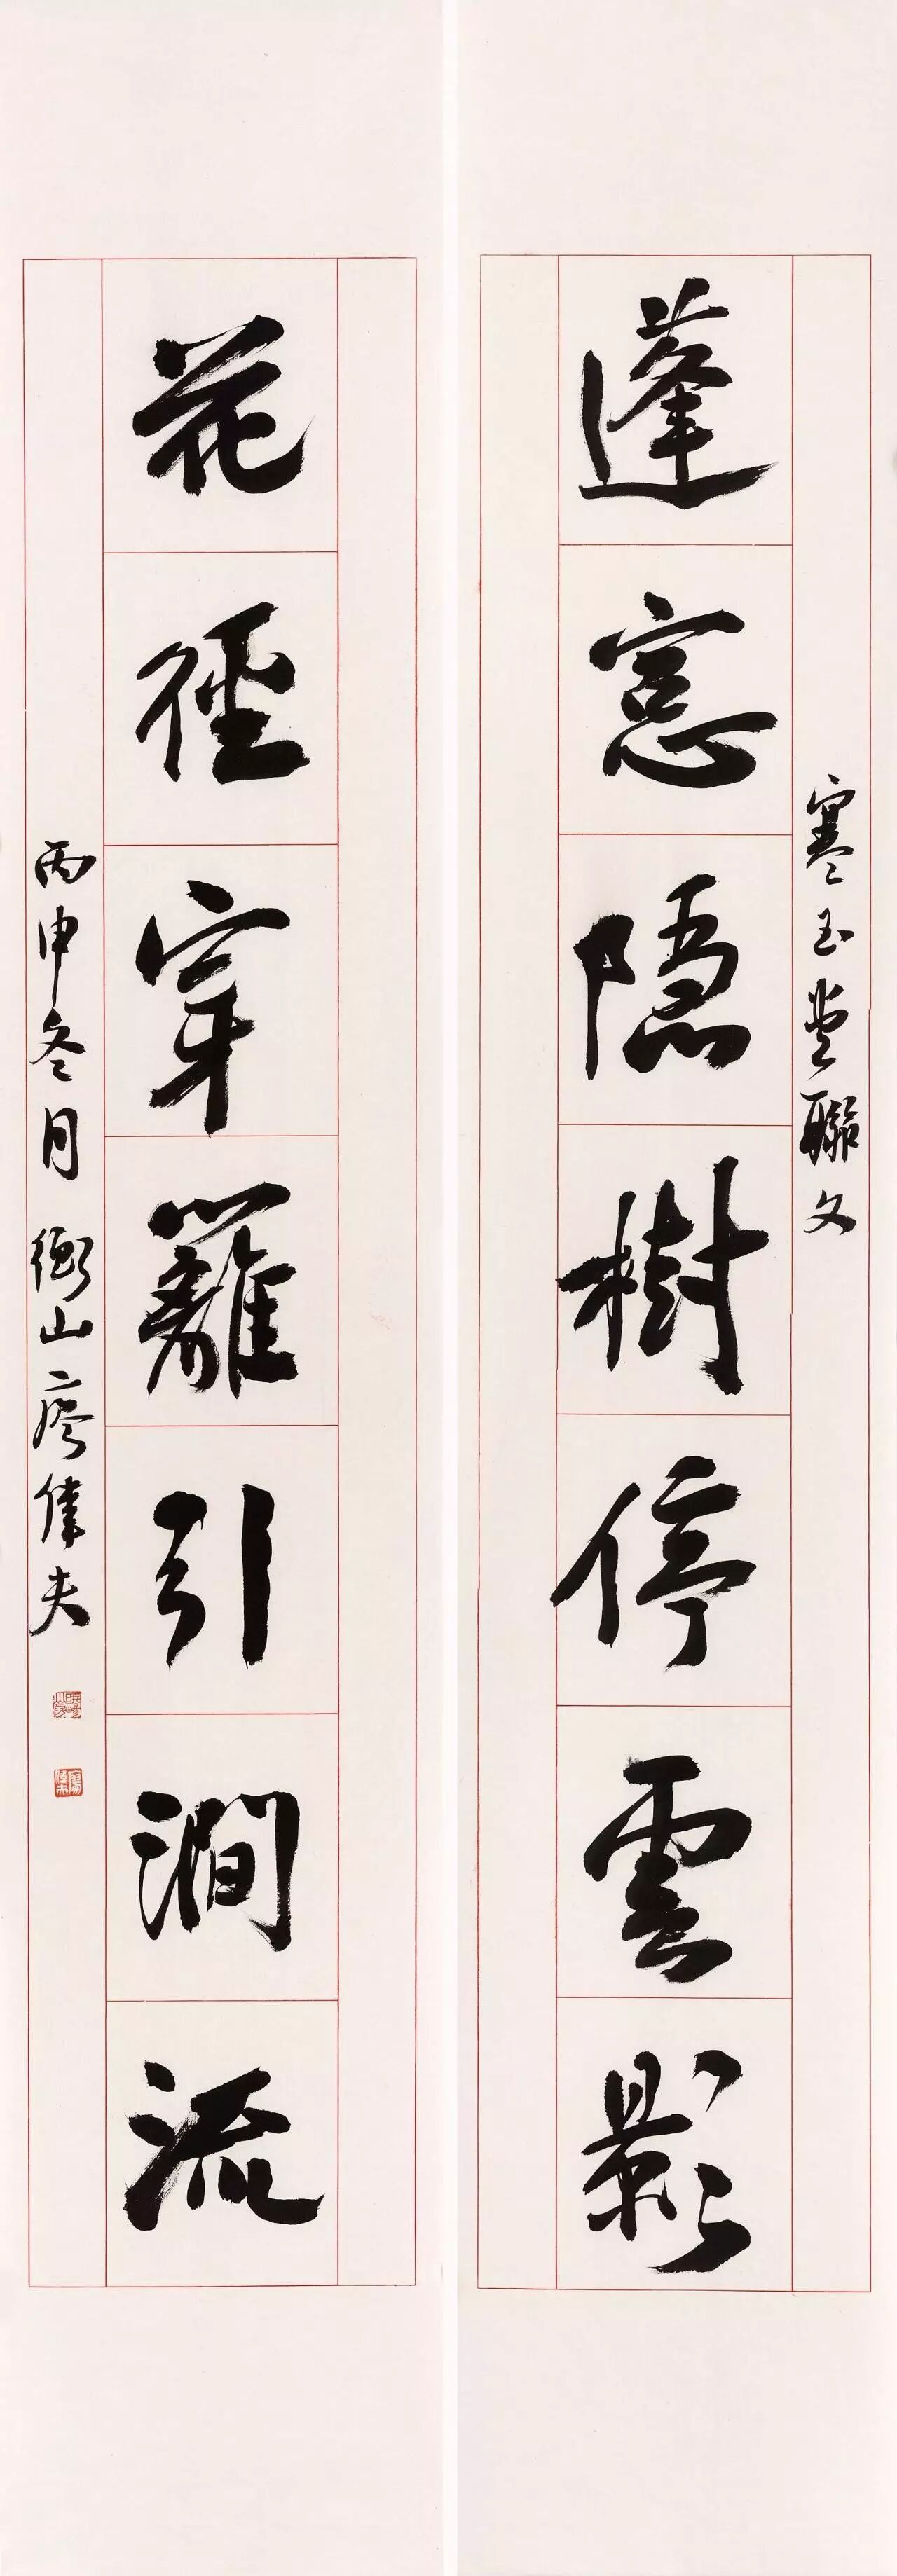 寒玉堂聯文
蓬窓隱樹停雲影
花徑穿籬引澗流
丙申冬月 衡山廖偉夫